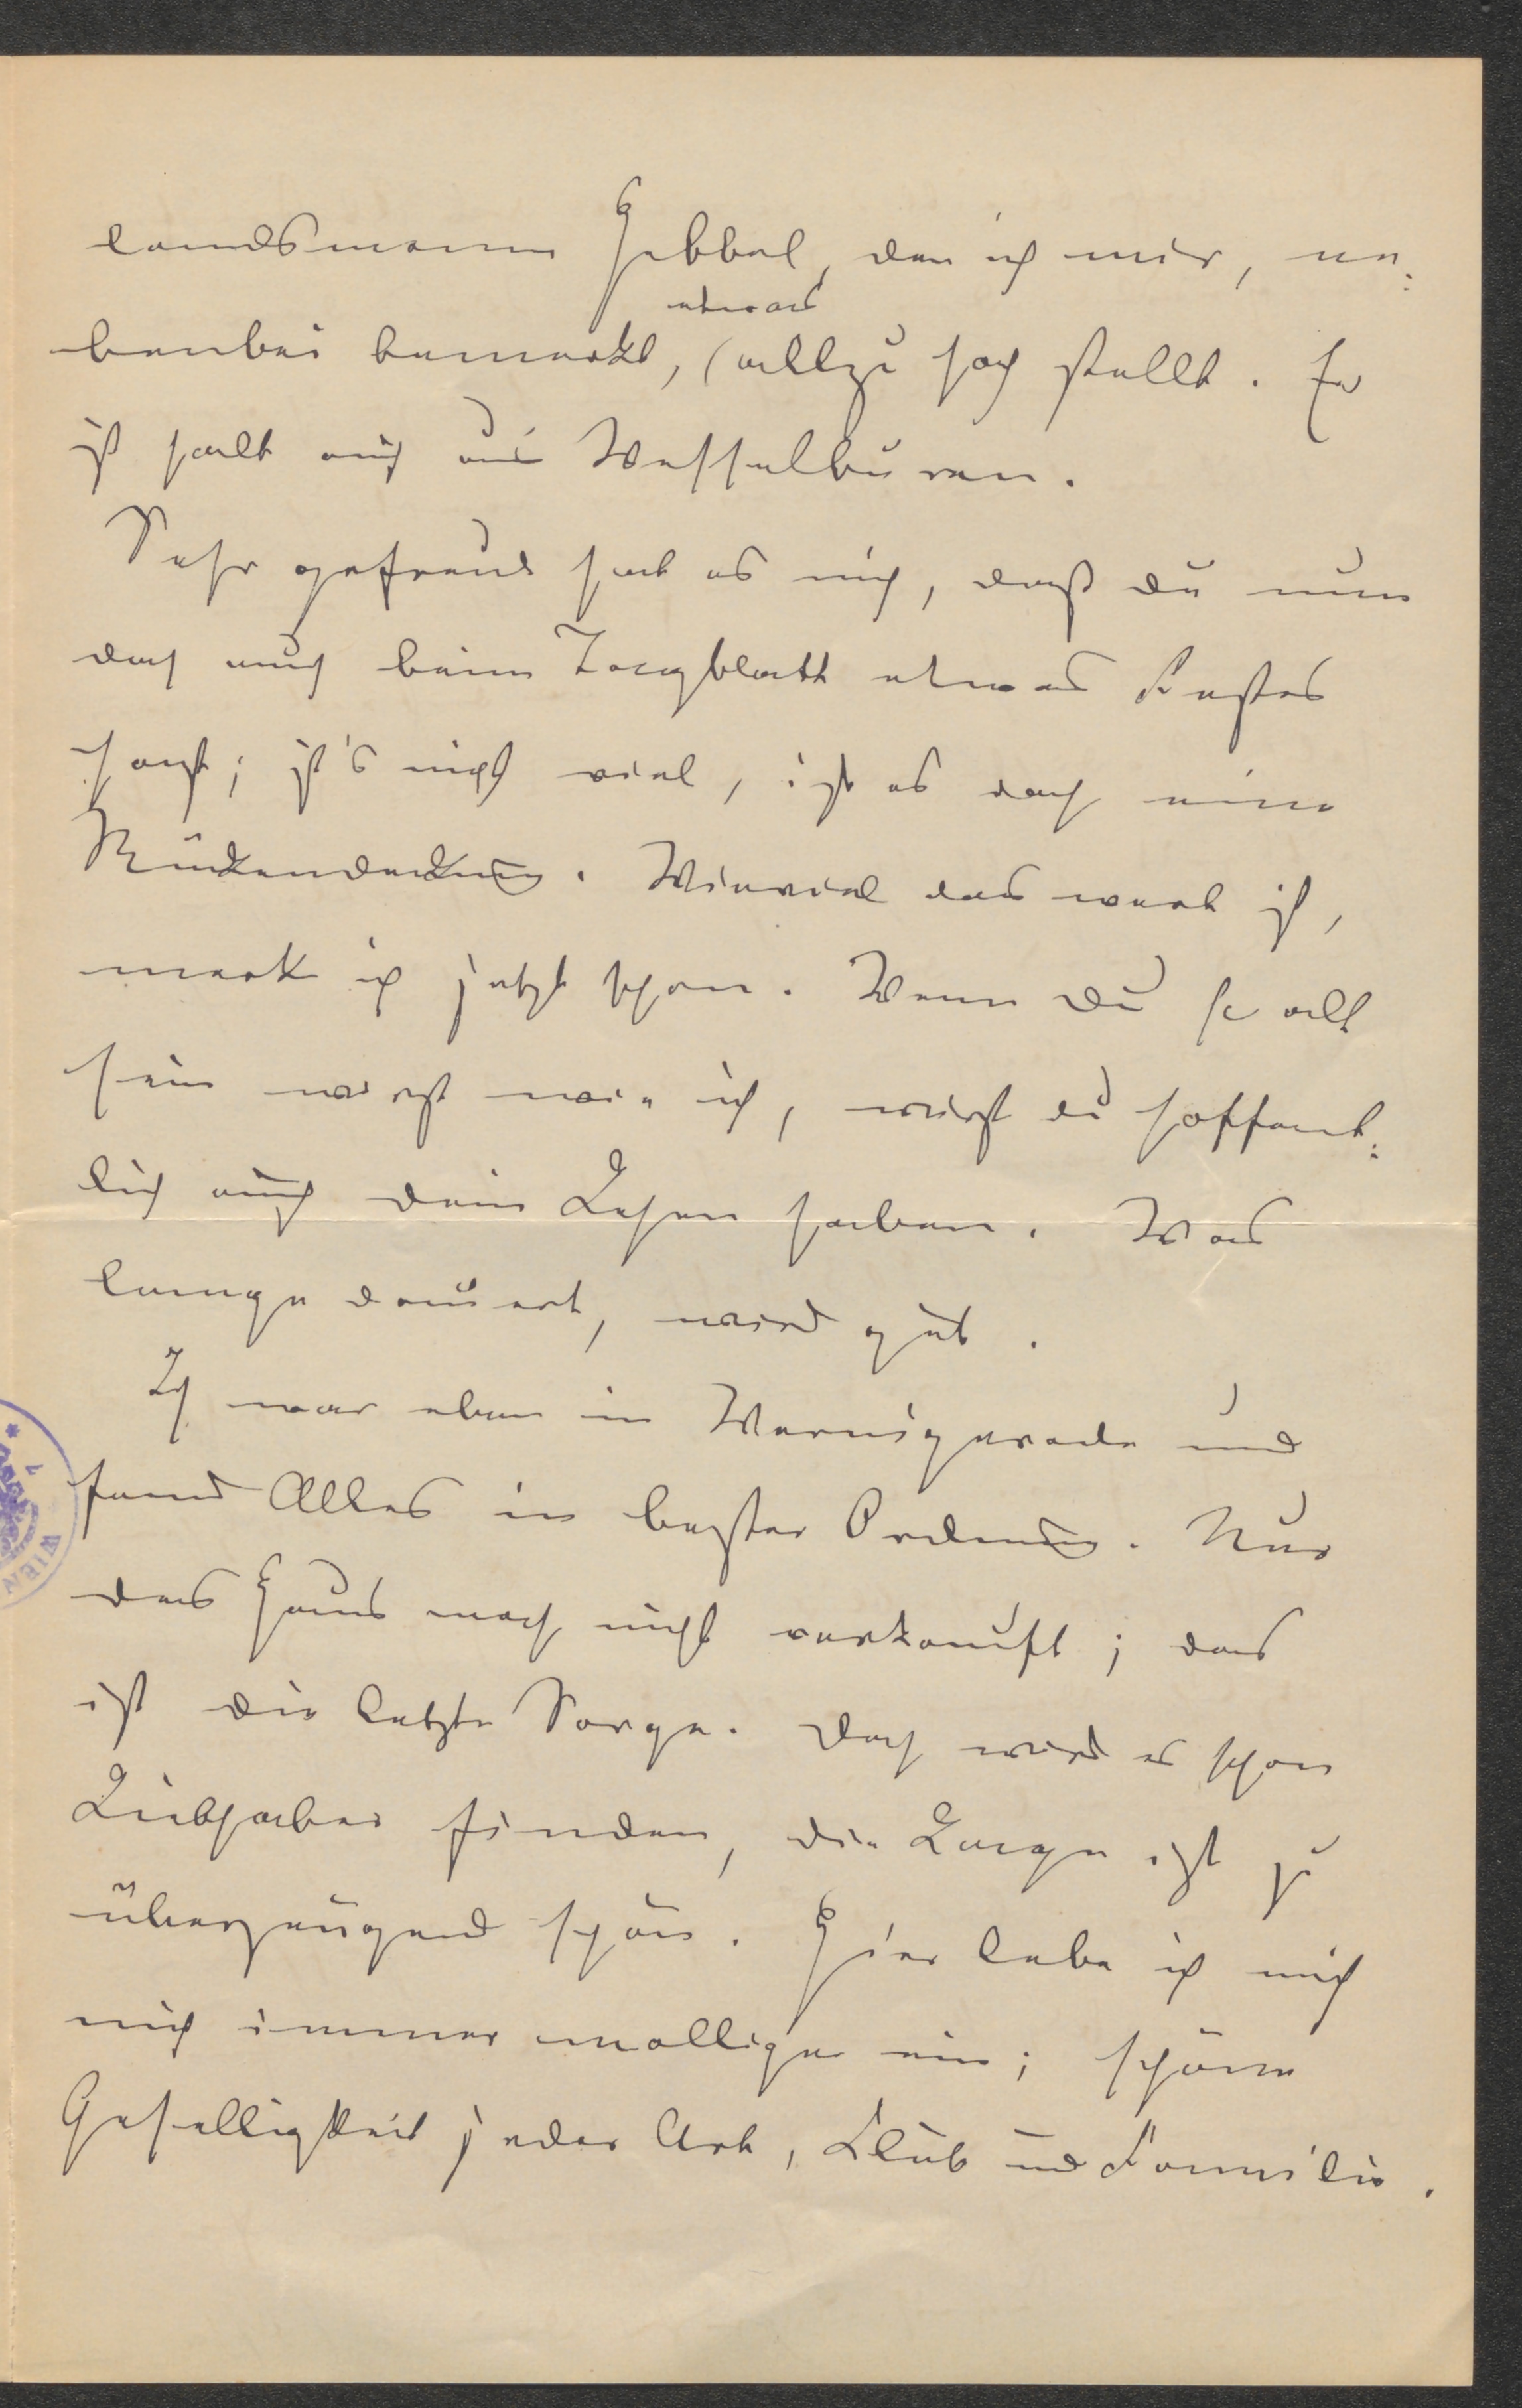 landsmann Hebbel, den ich mir, ne-
benbei bemerkt, etwas allzu hoch stellt. Er
ist halt auch aus Wesselburen.
Sehr gefreut hat es mich, daß du nun
doch auch beim Tagblatt etwas Festes
hast; ist's nicht viel, ist es doch eine
Rückendeckung. Wieviel das wert ist,
merk ich jetzt schon. Wenn du so alt
sein wirst wie ich, wirst du hoffent-
lich auch dein Lehen haben. Was
lange dauert, wird gut.
Ich war eben in Wernigerode und
fand Alles in bester Ordnung. Nur
das Haus noch nicht verkauft; das
ist die letzte Sorge. Doch wird es schon
Liebhaber finden, die Lage ist zu
überzeugend schön. Hier lebe ich mich
mich immer molliger ein; schöne
Geselligkeit jeder Art, Klub und Familie.
WIEN